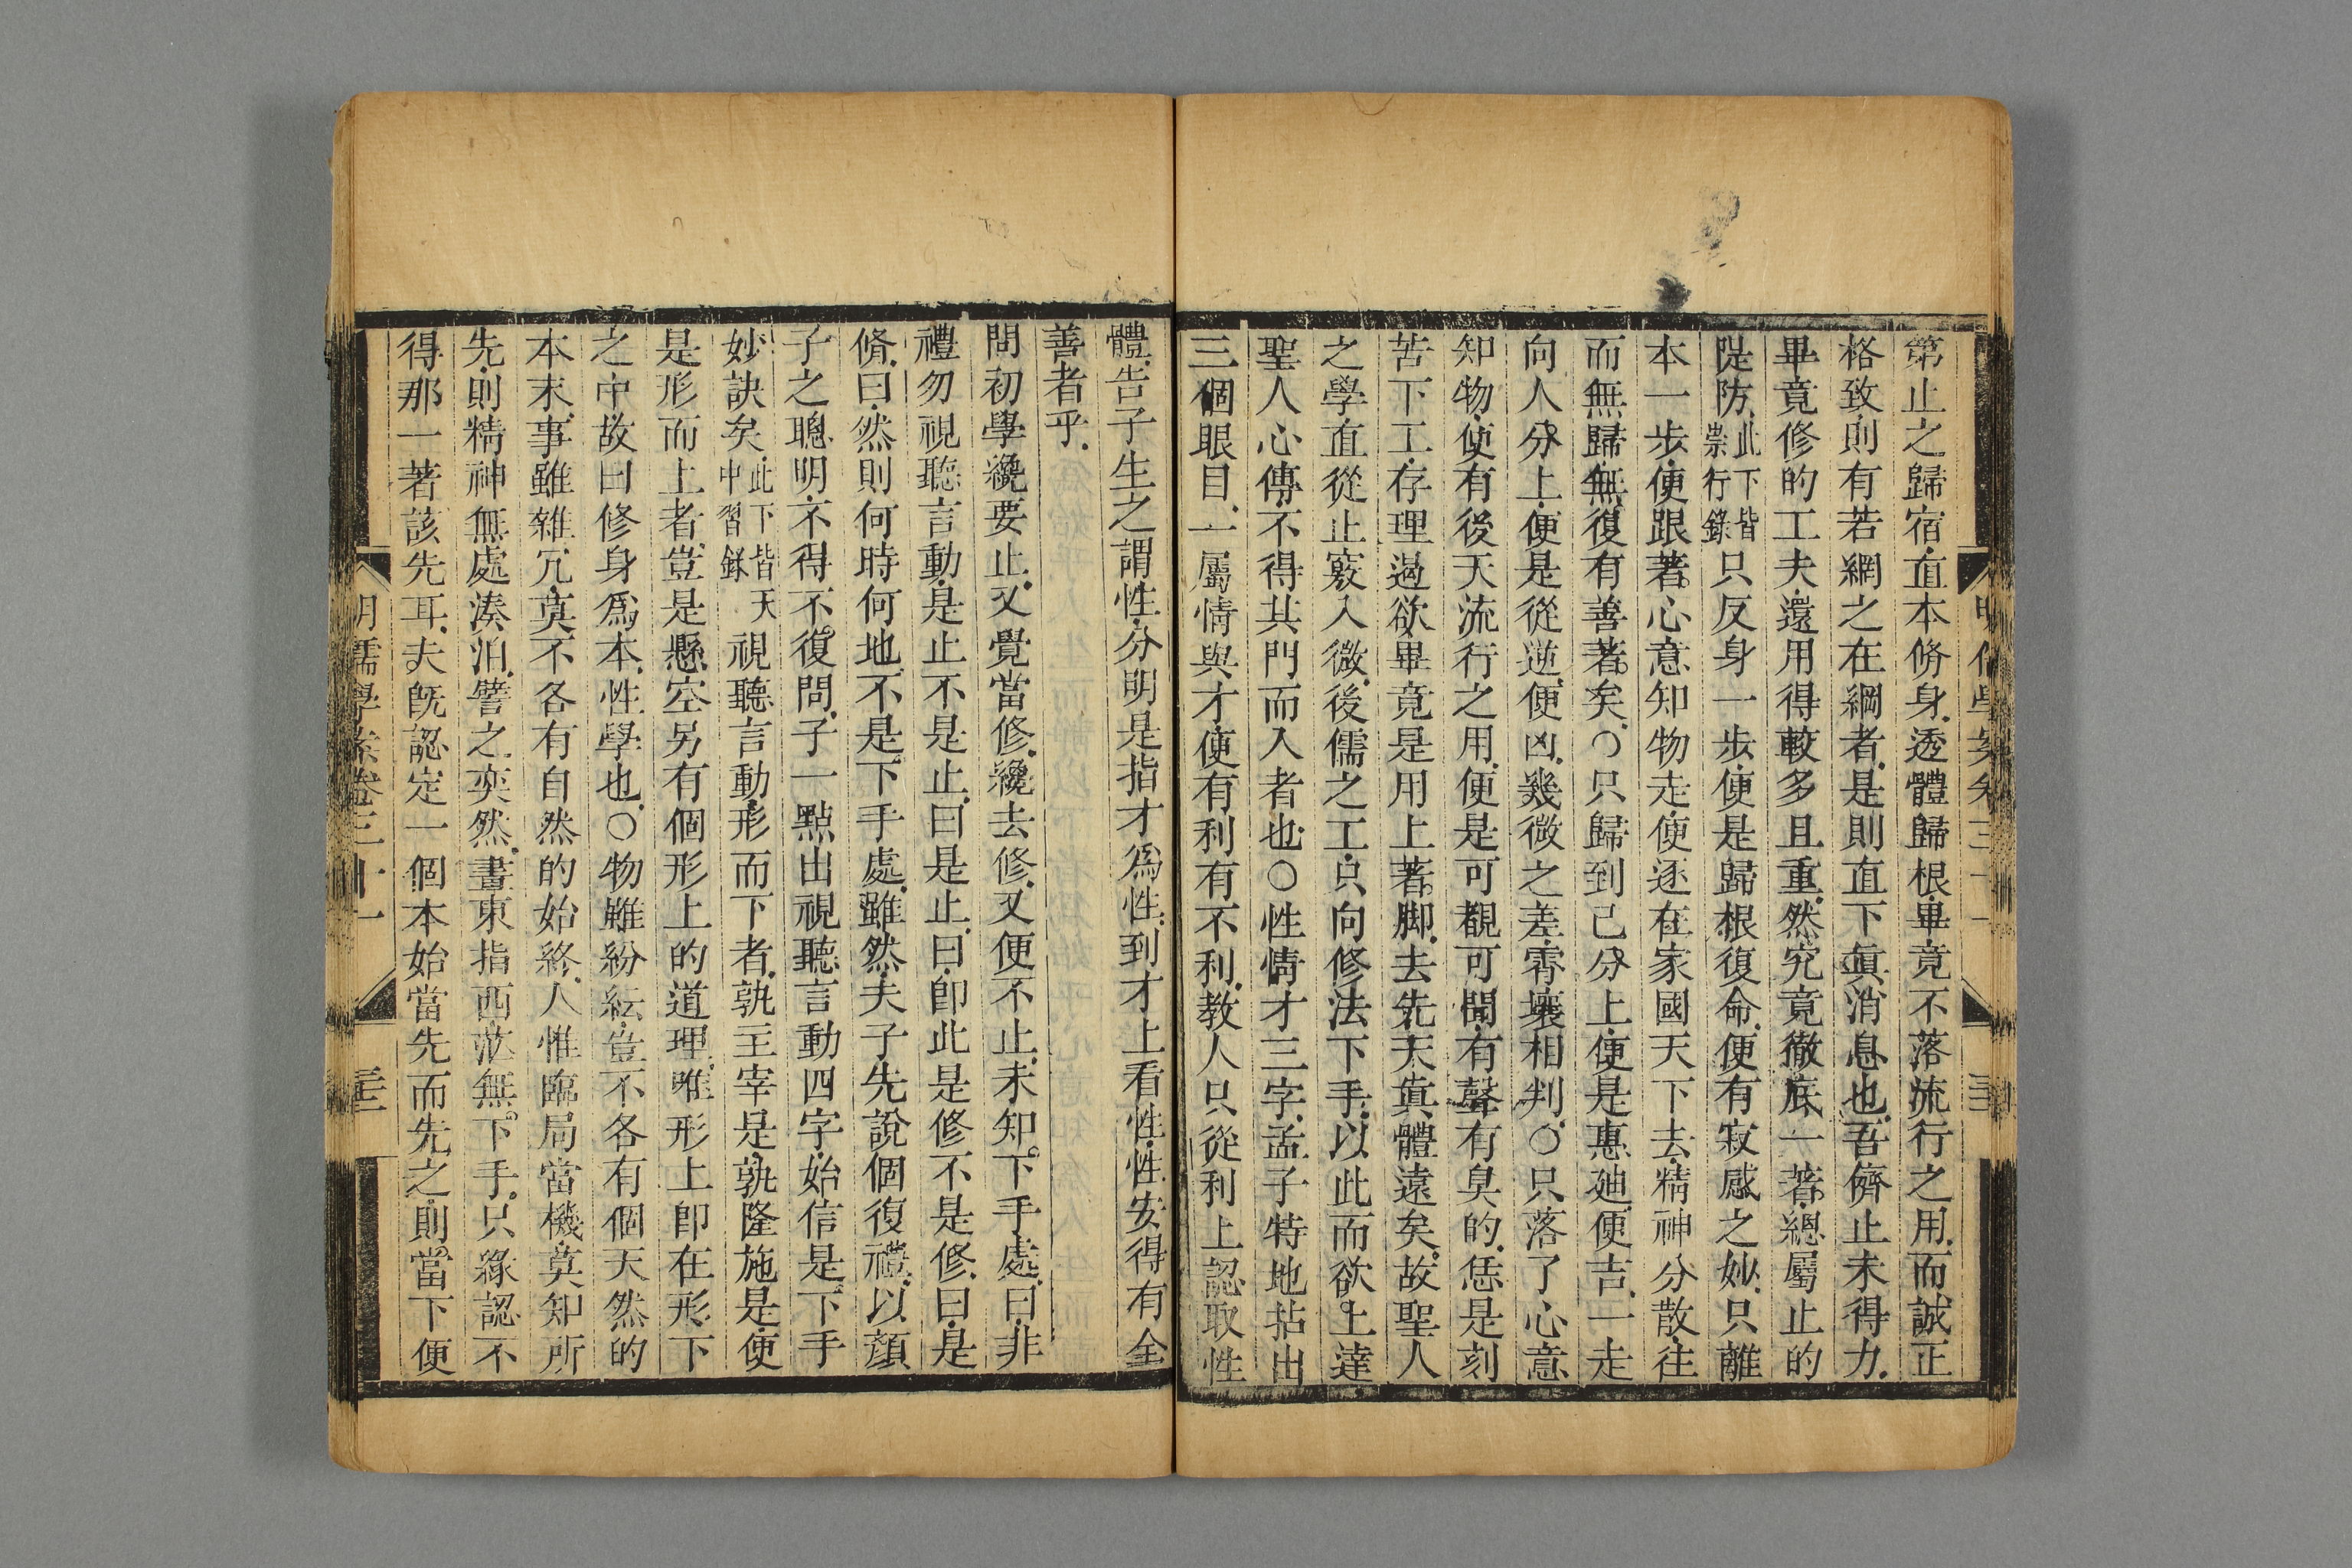 第止之歸宿直本脩身透體歸根畢竟不落流行之用而誠正
格致則有若網之在綱者是則直下眞消息也吾儕止未得力
畢竟修的工夫還用得較多且重然究竟徹底一著總屬止的
隄防此下皆崇行錄只反身一步便是歸根復命便有寂感之妙只離
本一步便跟著心意知物走便逐在家國天下去精神分散往
而無歸無復有善著矣○只歸到己分上便是惠廸便吉一走
向人分上便是從逆便凶幾微之差霄壤相判○只落了心意
知物便有後天流行之用便是可覩可聞有聲有臭的恁是刻
苦下工存理遏欲畢竟是用上著脚去先天眞體遠矣故聖人
之學直從止竅入微後儒之工只向修法下手以此而欲上達
聖人心傳不得其門而入者也○性情才三字孟子特地拈出
三個眼目一屬情與才便有利有不利教人只從利上認取性
體告子生之謂性分明是指才爲性到才上看性性安得有全
善者乎
問初學纔要止又覺當修纔去修又便不止未知下手處曰非
禮勿視聽言動是止不是止曰是止曰卽此是修不是修曰是
脩曰然則何時何地不是下手處雖然夫子先說個復禮以顏
子之聰明不得不復問子一點出視聽言動四字始信是下手
妙訣矣此下皆中習錄天視聽言動形而下者孰主宰是孰隆施是便
是形而上者豈是懸空另有個形上的道理唯形上卽在形下
之中故曰修身爲本性學也○物雖紛紜豈不各有個天然的
本末事雖雜冗莫不各有自然的始終人惟臨局當機莫知所
先則精神無處湊泊譬之奕然晝東指西茫無下手只緣認不
得那一著該先耳夫旣認定一個本始當先而先之則當下便
明儒學案卷三十一